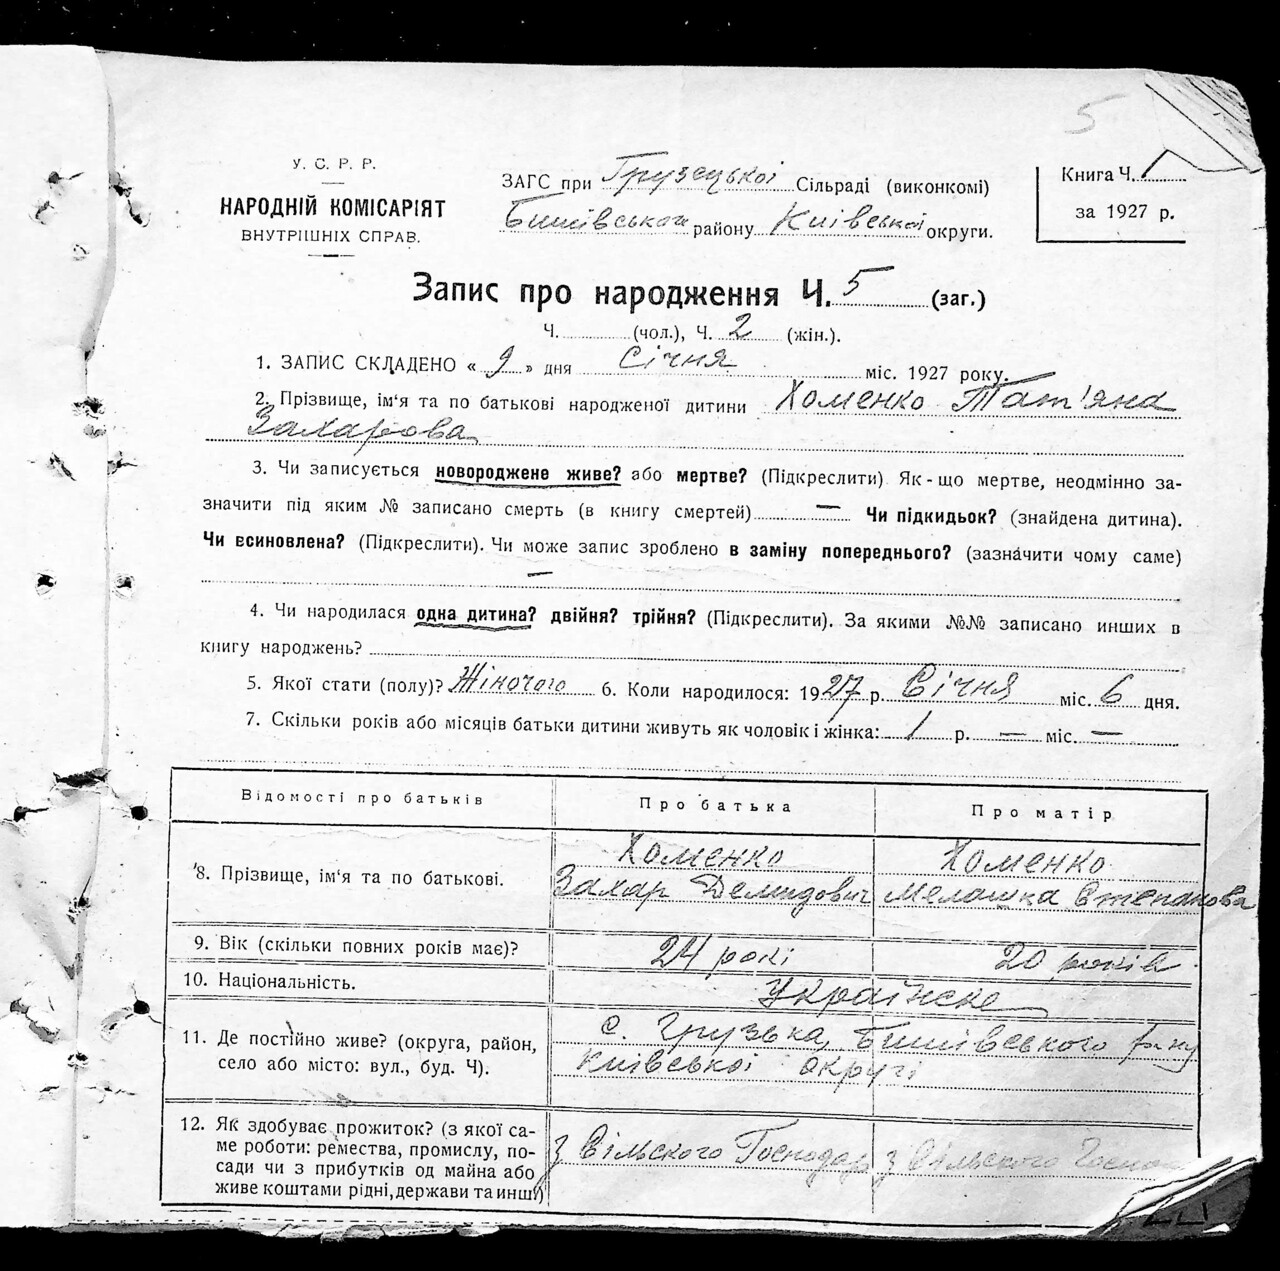 5
У. С. Р. Р.
НАРОДНІЙ КОМІСАРІЯТ
ВНУТРІШНІХ СПРАВ.
ЗАГС при Грузецької Сільраді (виконкомі)
Бишівського району Київської округи.
Книга Ч. 1
за 1927 р.
Запис про народження Ч. 5 (заг.)
Ч. (чол.), Ч. 2 (жін.).
1. ЗАПИС СКЛАДЕНО « 9 » дня Січня міс. 1927 року.
2. Прізвище, ім'я та по батькові народженої дитини Хоменко Тат'яна
Захарова
3. Чи записується новороджене живе? або мертве? (Підкреслити) Як-що мертве, неодмінно за-
значити під яким № записано смерть (в книгу смертей) — Чи підкидьок? (знайдена дитина).
Чи всиновлена? (Підкреслити). Чи може запис зроблено в заміну попереднього? (зазначити чому саме)
—
4. Чи народилася одна дитина? двійня? трійня? (Підкреслити). За якими №№ записано инших в
книгу народжень?
5. Якої стати (полу)? Жіночого 6. Коли народилося: 1927 р. Січня міс. 6 дня.
7. Скільки років або місяців батьки дитини живуть як чоловік і жінка: 1 р. — міс. —
Відомості про батьків Про батька Про матір
8. Прізвище, ім'я та по батькові. Хоменко Захар Демидович Хоменко Мелашка Степанова
9. Вік (скільки повних років має)? 24 рокі 20 років
10. Національність. Українске
11. Де постійно живе? (округа, район, с. Грузька, Бишівського р-ну
село або місто: вул., буд. Ч). Київської округі
12. Як здобуває прожиток? (з якої са-
ме роботи: ремества, промислу, по- з Сільского Господар з Сільского Господ
сади чи з прибутків од майна або
живе коштами рідні, держави та инш.)